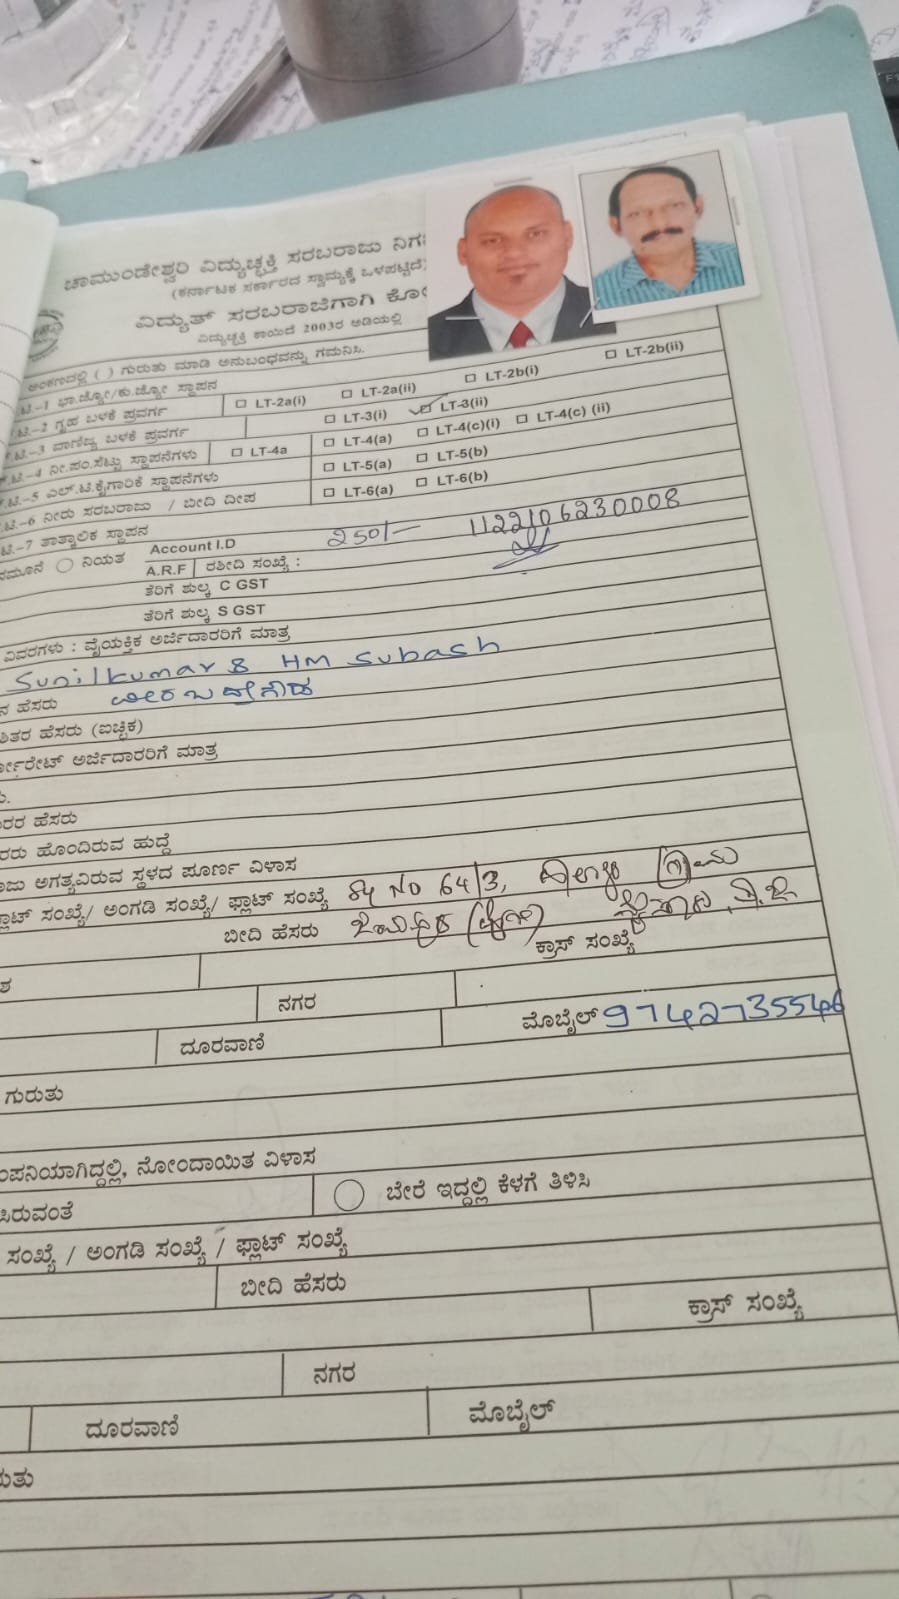 ಚಾಮುಂಡೇಶ್ವರಿ ವಿದ್ಯುಚ್ಛಕ್ತಿ ಸರಬರಾಜು ನಿಗ
(ಕರ್ನಾಟಕ ಸರ್ಕಾರದ ಸ್ವಾಮ್ಯಕ್ಕೆ ಒಳಪಟ್ಟಿದೆ)
ವಿದ್ಯುತ್ ಸರಬರಾಜಿಗಾಗಿ ಕೋ
ವಿದ್ಯುಚ್ಛಕ್ತಿ ಕಾಯಿದೆ 2003ರ ಅಡಿಯಲ್ಲಿ
ಅಂಕಣದಲ್ಲಿ ( ) ಗುರುತು ಮಾಡಿ ಅನುಬಂಧವನ್ನು ಗಮನಿಸಿ.
.ಟಿ.-1 ಭಾ.ಜ್ಯೋ/ಕು.ಜ್ಯೋ ಸ್ಥಾಪನ
.ಟಿ.-2 ಗೃಹ ಬಳಕೆ ಪ್ರವರ್ಗ LT-2a(i) LT-2a(ii) LT-2b(i) LT-2b(ii)
.ಟಿ.-3 ವಾಣಿಜ್ಯ ಬಳಕೆ ಪ್ರವರ್ಗ LT-3(i) LT-3(ii)
.ಟಿ.-4 ನೀ.ಪಂ.ಸೆಟ್ಟು ಸ್ಥಾಪನೆಗಳು LT-4a LT-4(a) LT-4(c)(i) LT-4(c) (ii)
.ಟಿ.-5 ಎಲ್.ಟಿ.ಕೈಗಾರಿಕೆ ಸ್ಥಾಪನೆಗಳು LT-5(a) LT-5(b)
.ಟಿ.-6 ನೀರು ಸರಬರಾಜು / ಬೀದಿ ದೀಪ LT-6(a) LT-6(b)
ಟಿ.-7 ತಾತ್ಕಾಲಿಕ ಸ್ಥಾಪನ
ನಮೂನೆ ನಿಯತ Account I.D 250/- 1122106230008
A.R.F ರಶೀದಿ ಸಂಖ್ಯೆ :
ತೆರಿಗೆ ಶುಲ್ಕ C GST
ತೆರಿಗೆ ಶುಲ್ಕ S GST
ವಿವರಗಳು : ವೈಯಕ್ತಿಕ ಅರ್ಜಿದಾರರಿಗೆ ಮಾತ್ರ
Sunilkumar & HM Subash
ನ ಹೆಸರು
ತರ ಹೆಸರು (ಐಚ್ಛಿಕ)
ರ್ಪೊರೇಟ್ ಅರ್ಜಿದಾರರಿಗೆ ಮಾತ್ರ
ರರ ಹೆಸರು
ರರು ಹೊಂದಿರುವ ಹುದ್ದೆ
ರಾಜು ಅಗತ್ಯವಿರುವ ಸ್ಥಳದ ಪೂರ್ಣ ವಿಳಾಸ
ಪ್ಲಾಟ್ ಸಂಖ್ಯೆ/ ಅಂಗಡಿ ಸಂಖ್ಯೆ/ ಫ್ಲಾಟ್ ಸಂಖ್ಯೆ NO 64/3,
ಬೀದಿ ಹೆಸರು
ಕ್ರಾಸ್ ಸಂಖ್ಯೆ
ನಗರ
ದೂರವಾಣಿ ಮೊಬೈಲ್ 9742735546
ಗುರುತು
ಂಪನಿಯಾಗಿದ್ದಲ್ಲಿ, ನೋಂದಾಯಿತ ವಿಳಾಸ
ಸಿರುವಂತೆ ಬೇರೆ ಇದ್ದಲ್ಲಿ ಕೆಳಗೆ ತಿಳಿಸಿ
ಸಂಖ್ಯೆ / ಅಂಗಡಿ ಸಂಖ್ಯೆ / ಫ್ಲಾಟ್ ಸಂಖ್ಯೆ
ಬೀದಿ ಹೆಸರು
ಕ್ರಾಸ್ ಸಂಖ್ಯೆ
ನಗರ
ದೂರವಾಣಿ ಮೊಬೈಲ್
ರುತು